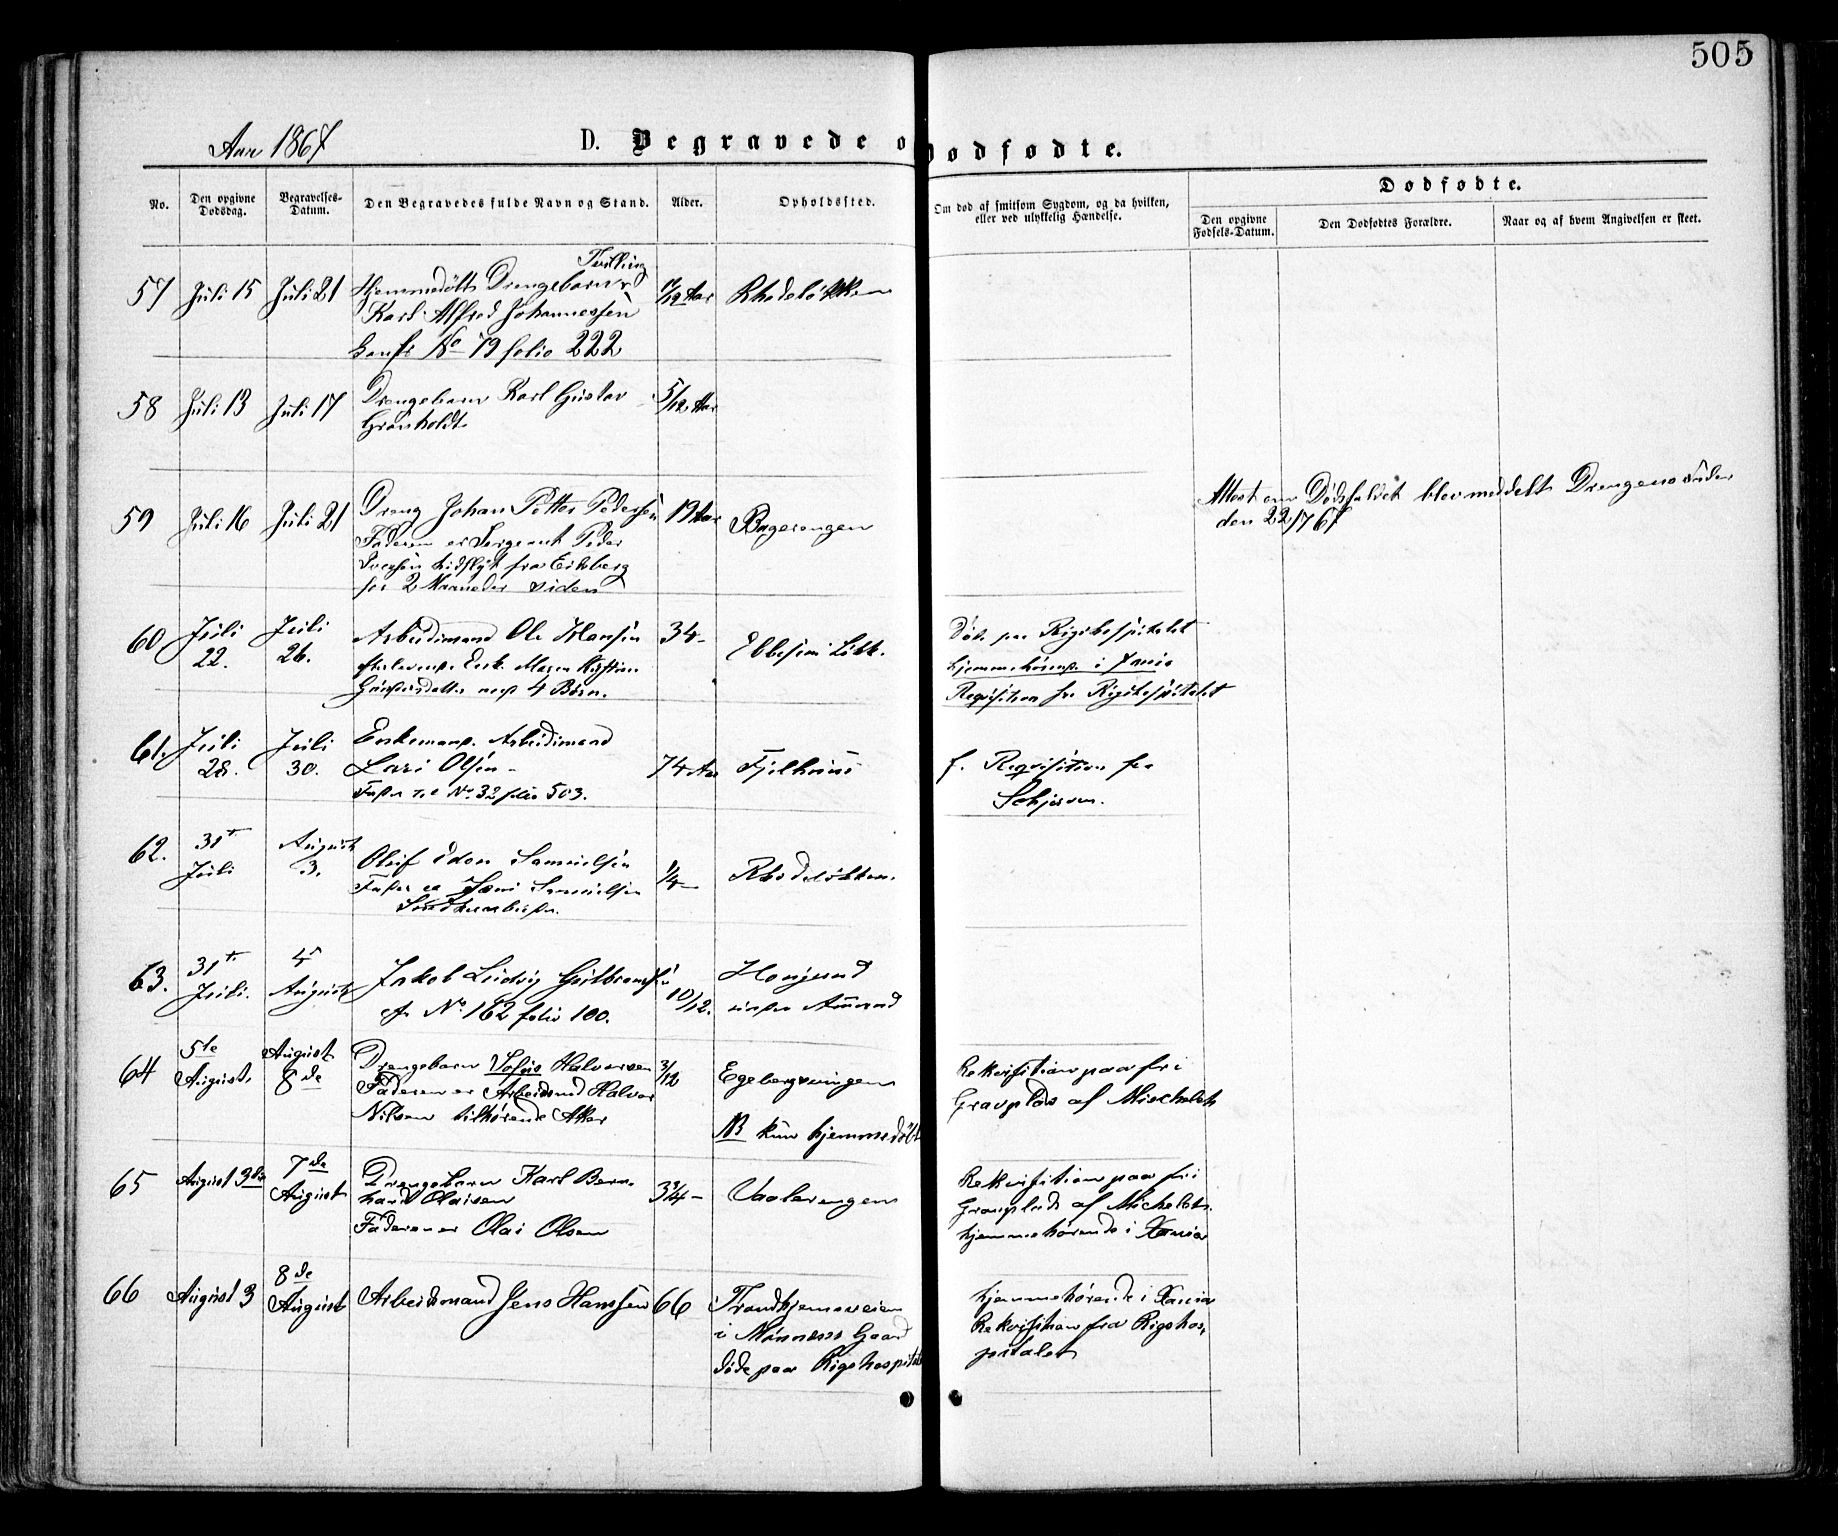 505
Aar 1867 D. Begravede o Dødfødte.
No. Den opgivne Dødsdag. Begravelses-Datum. Den Begravedes fulde Navn og Stand. Alder. Opholdssted. Om død af smitsom Sygdom, og da hvilken, eller ved ulykkelig Hændelse. Dødfødte.
Den opgivne Fødsels-Datum. Den Dødfødtes Forældre. Naar og af hvem Angivelsen er skeet.
Tvilling
57 Juli 15 Juli 21 Hjemmedøbt Drengebarn Aar Rhodeløkken
Karl Alfred Johannessen
No 79 folio 222
58 Juli 13 Juli 17 Drengebarn Karl Gustav 5/12 Aar
Grønholdt
Attest om Dødsfaldet blev meddelt Drengens
59 Juli 16 Juli 21 Dreng Johan Petter Pedersen 19 Aar Bagerengen den 22/7 67
Faderen er Sergeant Peder
fra
for 2 Maaneder siden
60 Juli 22. Juli 26. Arbeidsmand Ole Hansen 34 - Ebbesens Løkk. Døde paa Rigshospitalet
Enk. Maren hjemmehørend. i Xania
med 4 Børn. Reqvisition fra Rigshospitalet
61. Juli 28. Juli 30. Enkemand. Arbeidsmand
Lars Olsen - 74 Aar Fjelhuus f. Reqvisition fra
No 32 folio 503.
62. 31te Juli August 3. Oluf Samuelsen 1/4 - Rhodeløkken.
Fader er Samuelsen
63. 31te Juli. 4de August Jakob Ludvig Gulbrandsen 10/12. Hougsund
No 162 folio 100. under
64 5te August. August 8de Drengebarn Sofus Halvorsen 3/12 Egebergveningen Rekvisition paa fri
Faderen er Arbeidsmd Halvor Gravplads af Michelet
Nilsen tilhørende Aker
NB kun hjemmedøbt
65 August 3die 7de August Drengebarn Karl Bern- 3 3/4 - Vaalerengen Rekvisition paa fri
hard Olaisen Gravplads af Michelet.
Faderen er Olai Olsen hjemmehørende i Xania
66 August 3 8de August Arbeidsmand Jens Hanssen 66 Trondhjemsveien hjemmehørende i Xania
i Gaard Rekvisition fra Rigshos-
døde paa Rigshospitalet pitalet